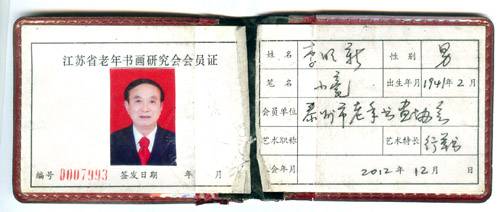 江苏省老年书画研究会会员证
编号 D007993 签发日期 年 月
姓名 李明新 性别 男
笔名 出生年月 1941年2月
会员单位 泰州市老年书画协会
艺术职称 艺术特长 行草书
会年月 2012年12月 日